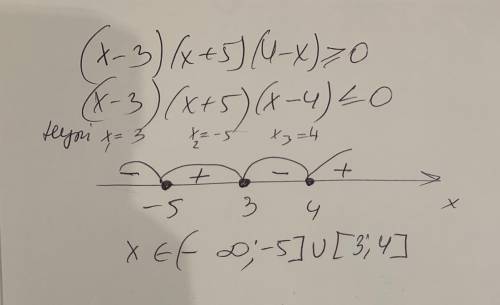 (x-3)(x+5)(4-x)≥0
(x-3)(x+5)(x-4)≤0
x₁=3 x₂=-5 x₃=4
- + - +
-5 3 4 x
x∈(-∞;-5]∪[3;4]